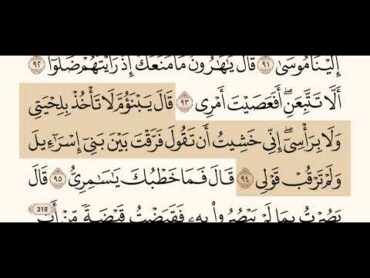 إِلَيْنَا مُوسَىٰ ٩١ قَالَ يَٰهَٰرُونُ مَا مَنَعَكَ إِذْ رَأَيْتَهُمْ ضَلُّوٓا۟ ٩٢
أَلَّا تَتَّبِعَنِ ۖ أَفَعَصَيْتَ أَمْرِى ٩٣ قَالَ يَبْنَؤُمَّ لَا تَأْخُذْ بِلِحْيَتِى
وَلَا بِرَأْسِىٓ ۖ إِنِّى خَشِيتُ أَن تَقُولَ فَرَّقْتَ بَيْنَ بَنِىٓ إِسْرَٰٓءِيلَ
وَلَمْ تَرْقُبْ قَوْلِى ٩٤ قَالَ فَمَا خَطْبُكَ يَٰسَٰمِرِىُّ ٩٥ قَالَ
بَصُرْتُ بِمَا لَمْ يَبْصُرُوا۟ بِهِۦ فَقَبَضْتُ قَبْضَةً مِّنْ أَثَ
318